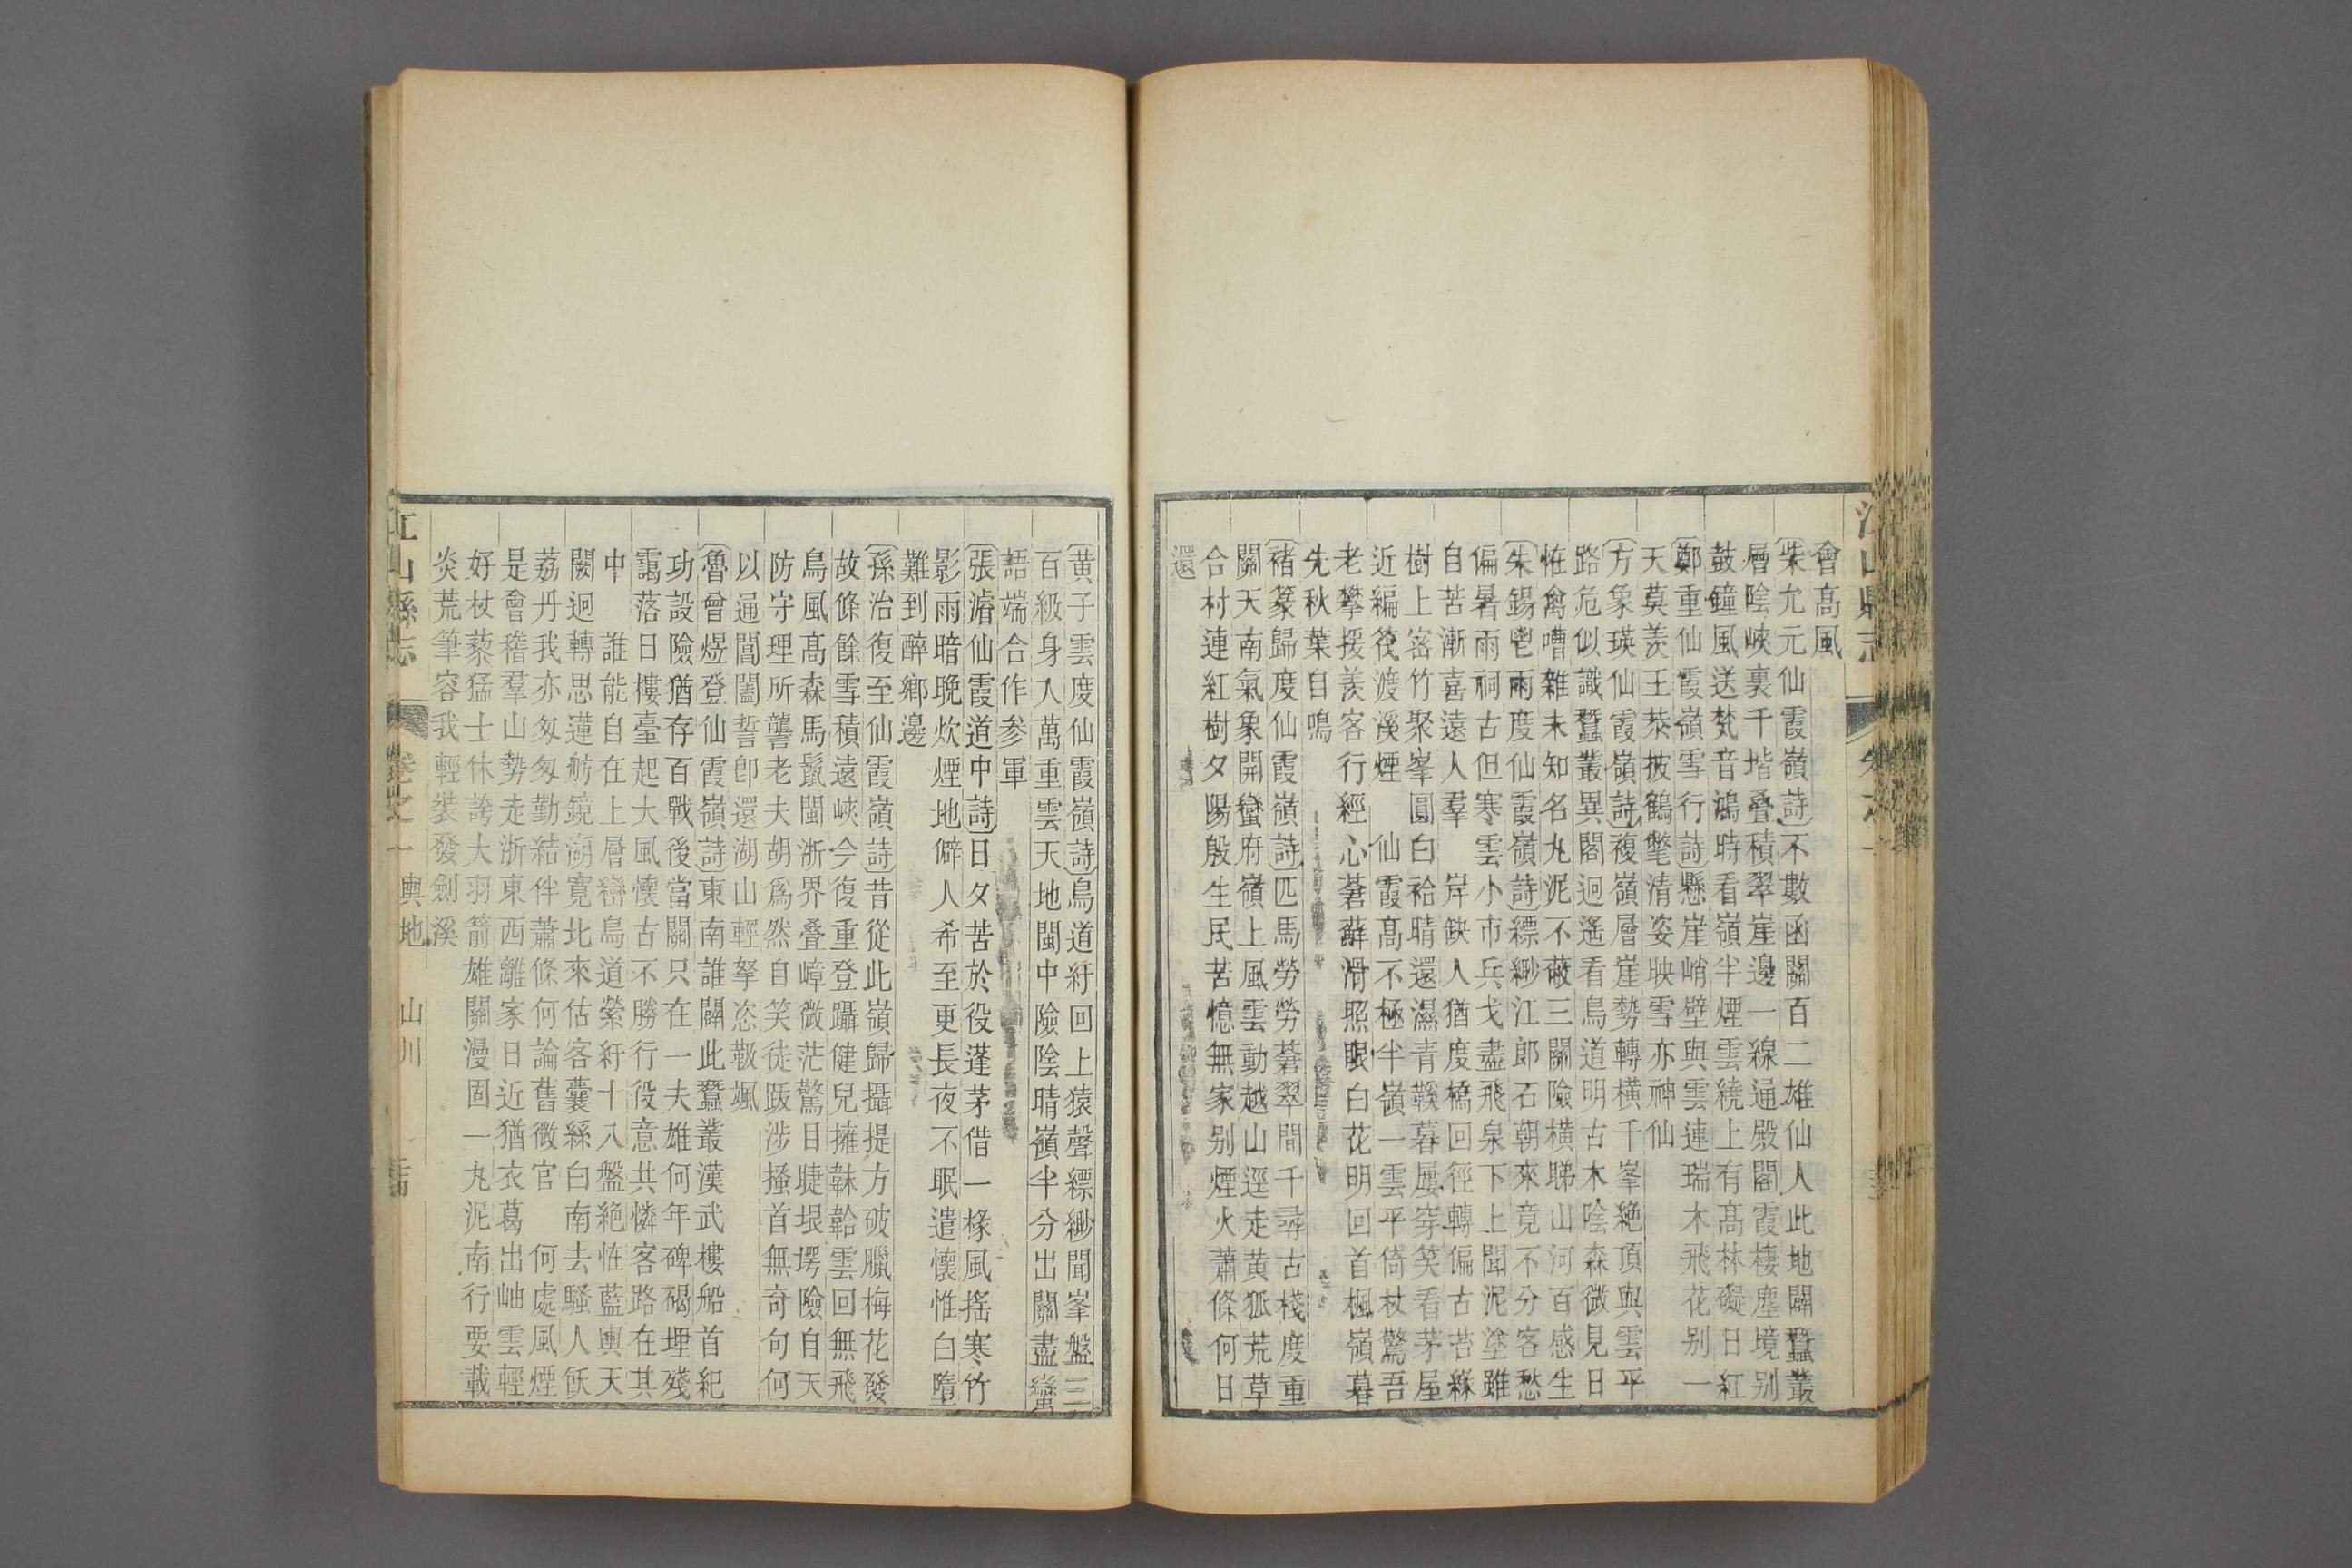 會髙風
柴允元仙霞嶺詩不數函關百二雄仙人此地闢蠶叢
層陰峽裏千堦叠積翠崖邊一線通殿閣霞棲塵境别
鼓鐘風送梵音鴻時看嶺半煙雲繞上有髙林礙日紅
鄭重仙霞嶺雪行詩懸崖峭壁與雲連瑞木飛花别一
天莫羡王恭披鶴氅清姿映雪亦神仙
方象瑛仙霞嶺詩複嶺層崖勢轉横千峯絶頂與雲平
路危似識蠶叢異閣迥遙看鳥道明古木陰森微見日
恠禽嘈雜未知名丸泥不蔽三關險横睇山河百感生
朱錫鬯雨度仙霞嶺詩縹緲江郎石朝來竟不分客愁
偏暑雨祠古但寒雲小市兵戈盡飛泉下上聞泥塗雖
自苦漸喜遠人羣　岸缺人猶度橋回徑轉偏古苔緣
樹上密竹聚峯圓白袷晴還濕青鞵暮屢穿笑看茅屋
近編筏渡溪煙　仙霞髙不極半嶺一雲平倚杖驚吾
老攀援羡客行經心蒼蘚滑照眼白花明回首楓嶺暮
先秋葉自鳴
褚篆歸度仙霞嶺詩匹馬勞勞碧翠間千尋古棧度重
關天南氣象開蠻府嶺上風雲動越山逕走黄狐荒草
合村連紅樹夕陽殷生民苦憶無家别煙火蕭條何日
還
黄子雲度仙霞嶺詩鳥道紆回上猿聲縹緲聞峯盤三
百級身入萬重雲天地閩中險陰晴嶺半分出關盡蠻
語端合作參軍
張濬仙霞道中詩日夕苦於役蓬茅借一椽風搖寒竹
影雨暗晚炊煙地僻人希至更長夜不眠遣懷惟白墮
難到醉鄉邊
孫治復至仙霞嶺詩昔從此嶺歸攝提方破臘梅花發
故條餘雪積遠峽今復重登躡健兒擁韎韐雲回無飛
鳥風髙森馬鬣閩浙界叠嶂微茫驚目睫垠堮險自天
防守理所讋老夫胡爲然自笑徒跋涉搔首無奇句何
以通閶闔誓卽還湖山輕拏恣鞁颯
魯曾煜登仙霞嶺詩東南誰闢此蠶叢漢武樓船首紀
功設險猶存百戰後當關只在一夫雄何年碑碣埋殘
靄落日樓臺起大風懷古不勝行役意共憐客路在其
中　誰能自在上層巒鳥道縈紆十八盤絶恠藍輿天
闕迥轉思蓮舫鏡湖寛北來估客囊絲白南去騷人飫
荔丹我亦匆匆勤結伴蕭條何論舊微官　何處風煙
是會稽羣山勢走浙東西離家日近猶衣葛出岫雲輕
好杖藜猛士休誇大羽箭雄關漫固一丸泥南行要載
炎荒筆容我輕裝發劍溪
江山縣志　卷之一　輿地　山川